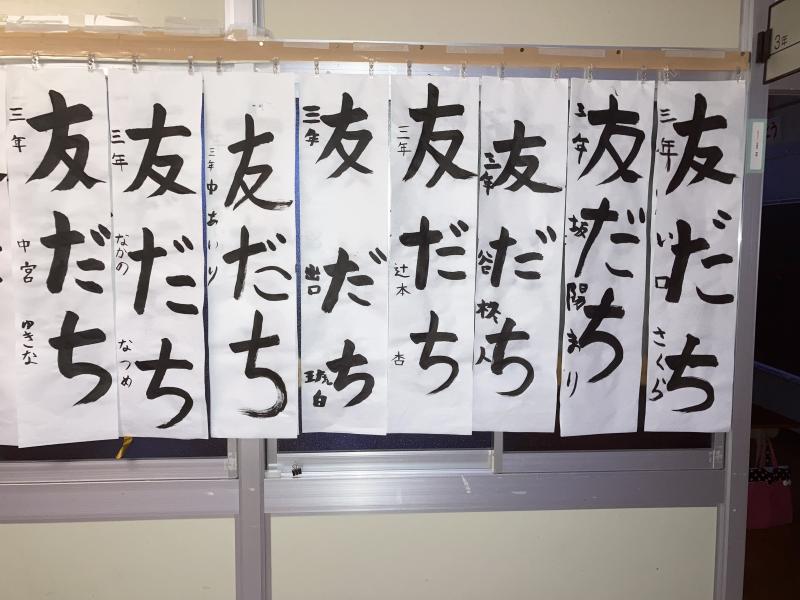 3年
友だち
三年 い口 さくら
友だち
三年 坂 陽まり
友だち
三年 谷 柊人
友だち
三年 辻本 杏
友だち
三年 出口 琥白
友だち
三年 中 あいり
友だち
三年 なかの なつめ
友だち
三年 中宮 ゆきな